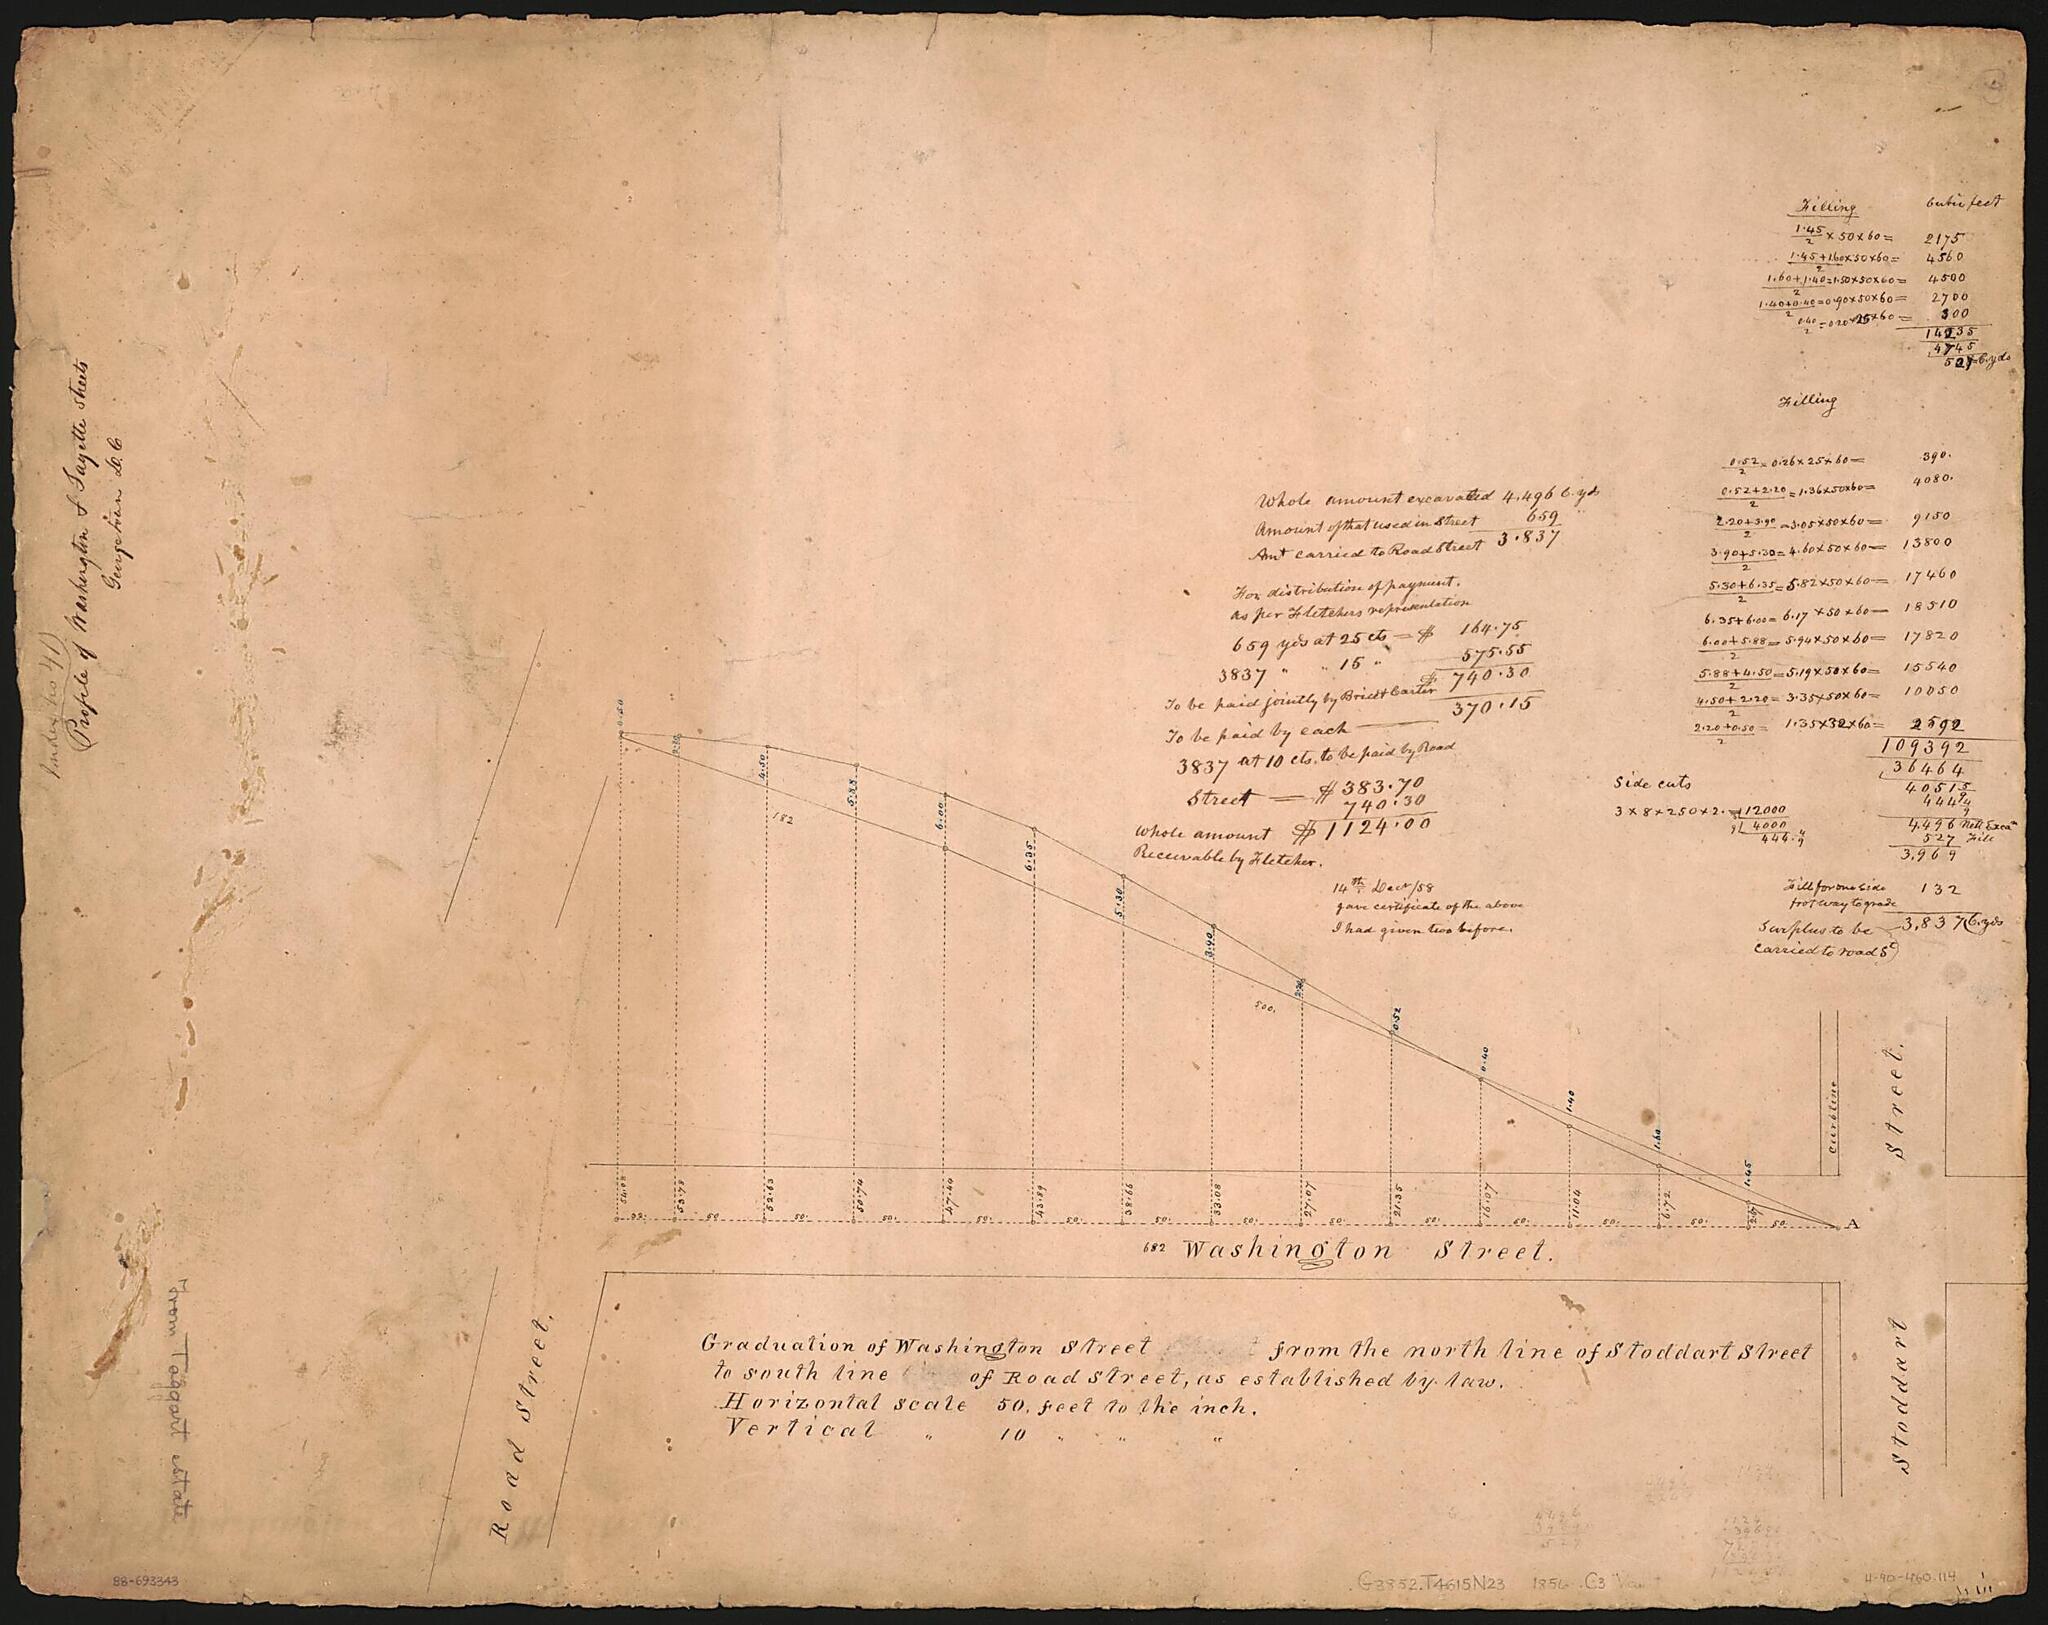 Filling Cubic feet
1.45/2 × 50 × 60 = 2175
1.45+1.60/2 × 50 × 60 = 4560
1.60+1.40/2 = 1.50 × 50 × 60 = 4500
1.40+0.40/2 = 0.90 × 50 × 60 = 2700
0.40/2 = 0.20 × 25 × 60 = 300
14235
4745
527 C. yds
Filling
0.52/2 = 0.26 × 25 × 60 = 390.
0.52+2.20/2 = 1.36 × 50 × 60 = 4080.
2.20+3.90/2 = 3.05 × 50 × 60 = 9150
3.90+5.30/2 = 4.60 × 50 × 60 = 13800
5.30+6.35/2 = 5.82 × 50 × 60 = 17460
6.35+6.00 = 6.17 × 50 × 60 = 18510
6.00+5.88/2 = 5.94 × 50 × 60 = 17820
5.88+4.50/2 = 5.19 × 50 × 60 = 15540
4.50+2.20/2 = 3.35 × 50 × 60 = 10050
2.20+0.50/2 = 1.35 × 32 × 60 = 2592
109392
36464
40515
444 4/9
4.496 Nett Excan
527 Fill
3.969
Side cuts
3 × 8 × 250 × 2. = 12000
9 4000
444.4/9
Fill for one side
foot way to grade 132
Surplus to be 3.837 C. yds
carried to road St
Whole amount excavated 4.496 C. yds
Amount of that used in Street 659 "
Amt carried to Road Street 3.837
For distribution of payment.
as per Fletchers representation
659 yds at 25 cts = $ 164.75
3837 " " 15 " 575.55
To be paid jointly by Brice & Carter $ 740.30
To be paid by each 370.15
3837 at 10 cts. to be paid by Road
Street = $ 383.70
740.30
Whole amount $ 1124.00
Receivable by Fletcher.
14th Decr/58
gave certificate of the above
I had given two before.
(Under No 41)
Profile of Washington & Fayette streets
Georgetown D.C
From Taggart estate
0.50
2.20
4.50
5.88
6.00
6.35
5.30
3.90
2.20
0.52
0.40
1.40
1.60
1.45
182
500.
54.08
53.78
52.63
50.74
47.44
43.89
38.66
33.08
27.07
21.35
16.07
11.04
6.72
2.67
32. 50 50. 50. 50. 50. 50. 50. 50. 50. 50. 50. 50. 50.
A
682 Washington Street.
Curbline
Street.
Stoddart
Road Street.
Graduation of Washington Street from the north line of Stoddart Street
to south line of Road Street, as established by law.
Horizontal scale 50. feet to the inch.
Vertical " 10 " " "
88-693343
G3852.T4615N23 1856 .C3 Vault
4-90-460.114